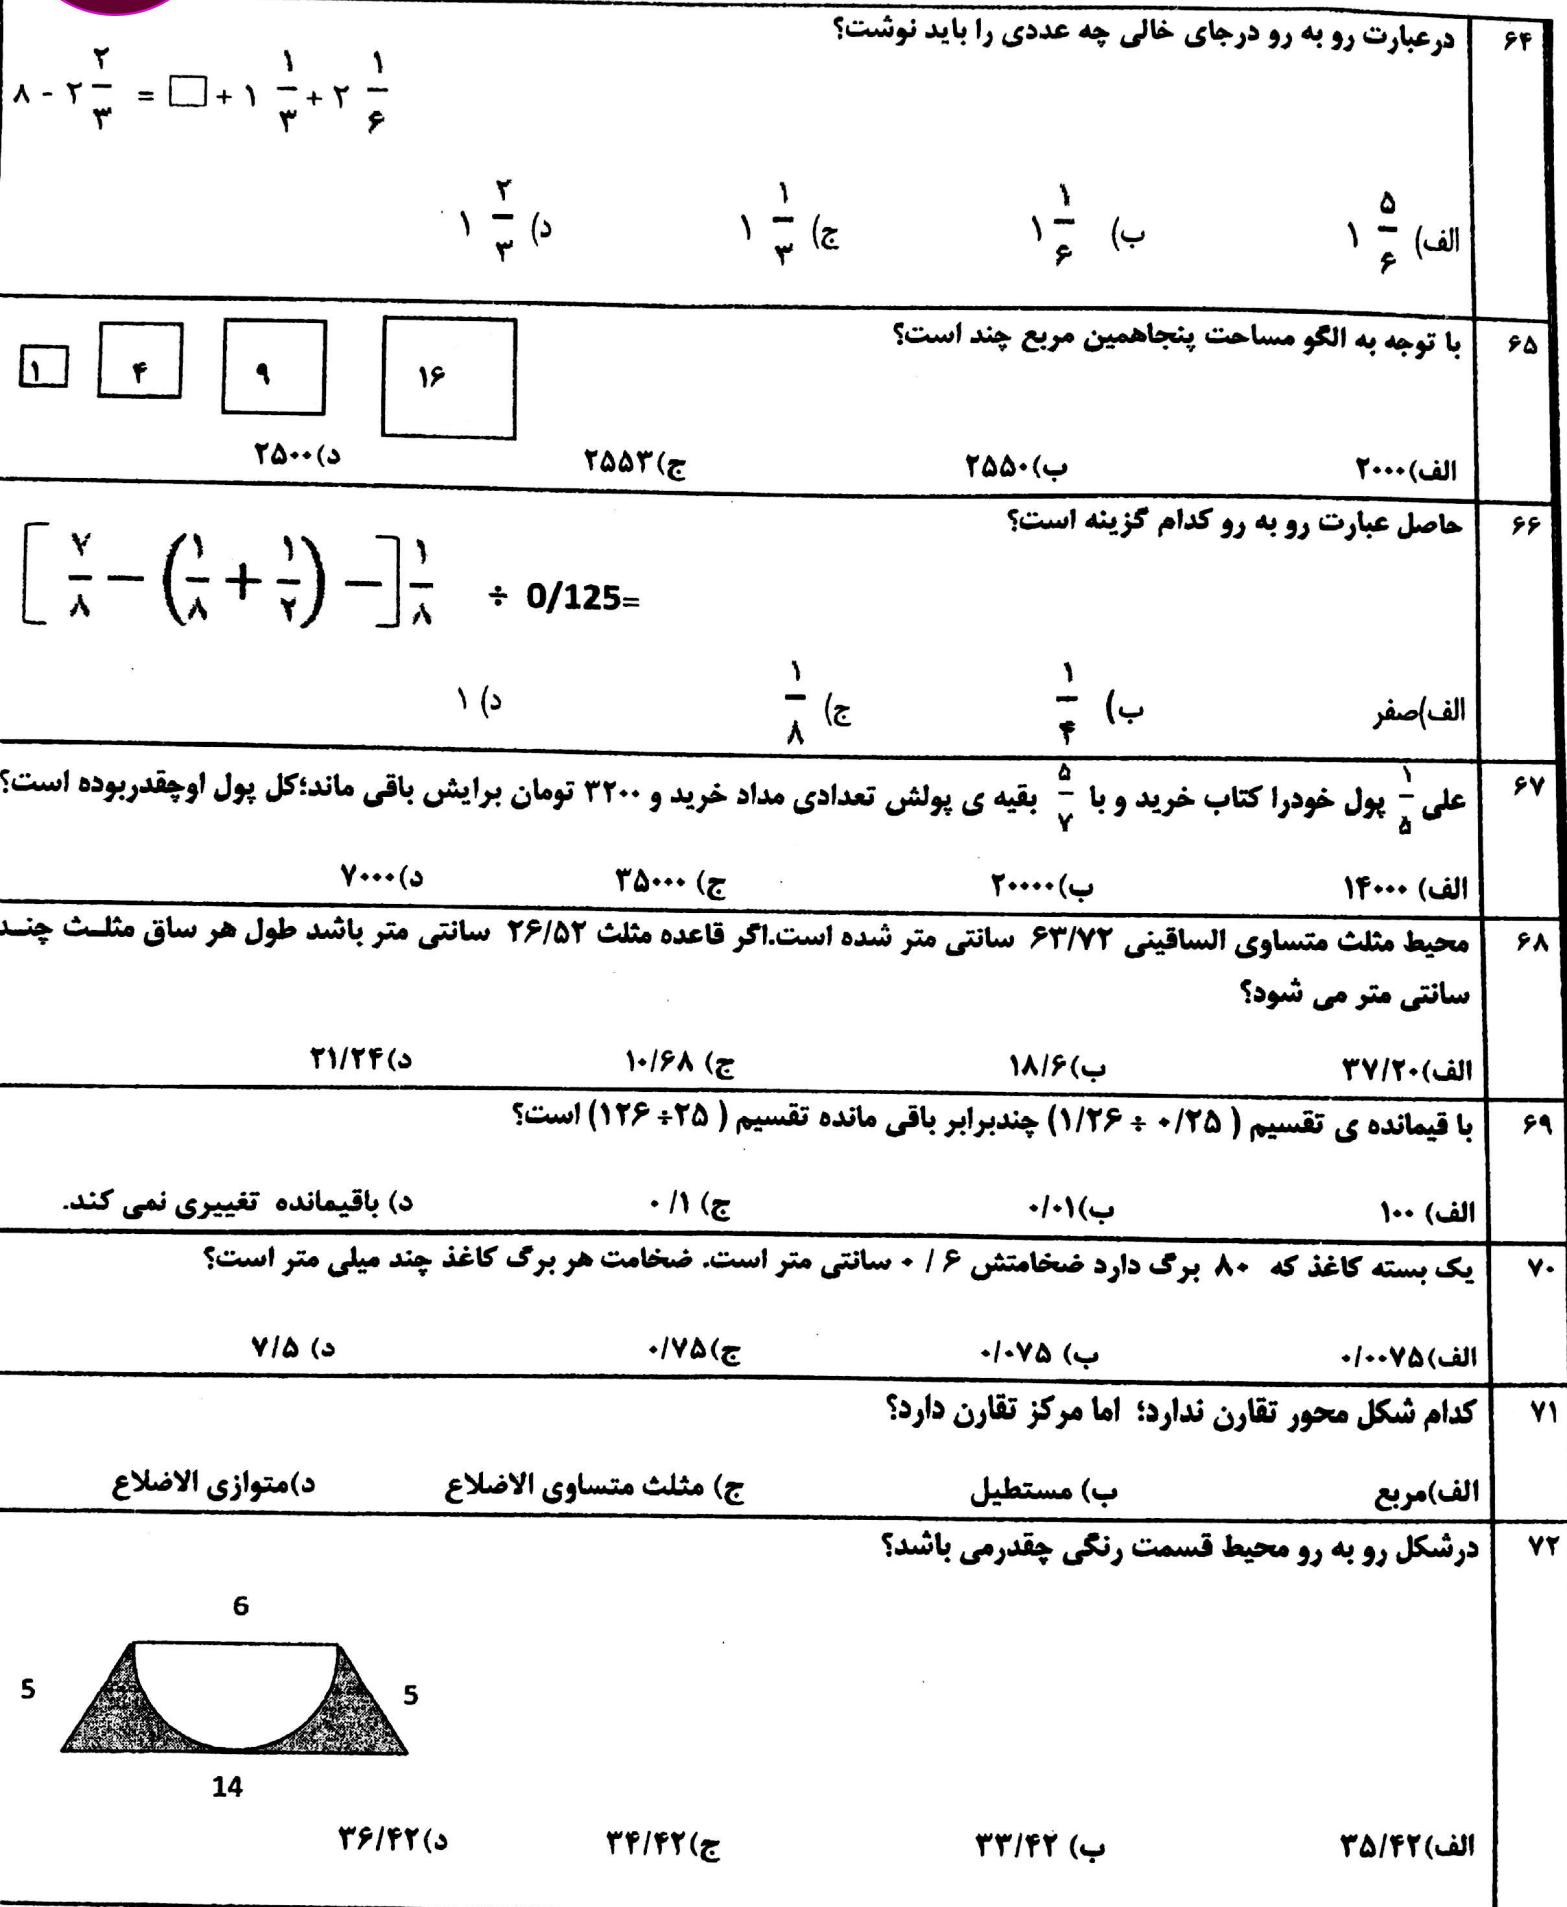 ۶۴ درعبارت رو به رو درجای خالی چه عددی را باید نوشت؟
۸ - ۲ ۲/۳ = □ + ۱ ۱/۳ + ۲ ۱/۶
الف) ۱ ۵/۶ ب) ۱ ۱/۶ ج) ۱ ۱/۳ د) ۱ ۲/۳
۶۵ با توجه به الگو مساحت پنجاهمین مربع چند است؟
۱ ۴ ۹ ۱۶
الف)۲۰۰۰ ب)۲۵۵۰ ج)۲۵۵۳ د)۲۵۰۰
۶۶ حاصل عبارت رو به رو کدام گزینه است؟
[ ۷/۸ − (۱/۸ + ۱/۲) − ] ۱/۸ ÷ 0/125=
الف)صفر ب) ۱/۴ ج) ۱/۸ د) ۱
۶۷ علی ۱/۵ پول خودرا کتاب خرید و با ۵/۷ بقیه ی پولش تعدادی مداد خرید و ۳۲۰۰ تومان برایش باقی ماند؛کل پول اوچقدربوده است؟
الف) ۱۴۰۰۰ ب)۲۰۰۰۰ ج) ۳۵۰۰۰ د)۷۰۰۰
۶۸ محیط مثلث متساوی الساقینی ۶۳/۷۲ سانتی متر شده است.اگر قاعده مثلث ۲۶/۵۲ سانتی متر باشد طول هر ساق مثلث چند
سانتی متر می شود؟
الف)۳۷/۲۰ ب)۱۸/۶ ج) ۱۰/۶۸ د)۲۱/۲۴
۶۹ با قیمانده ی تقسیم ( ۰/۲۵ ÷ ۱/۲۶) چندبرابر باقی مانده تقسیم ( ۲۵÷ ۱۲۶) است؟
الف) ۱۰۰ ب)۰/۰۱ ج) ۰/۱ د) باقیمانده تغییری نمی کند.
۷۰ یک بسته کاغذ که ۸۰ برگ دارد ضخامتش ۰ / ۶ سانتی متر است. ضخامت هر برگ کاغذ چند میلی متر است؟
الف)۰/۰۰۷۵ ب) ۰/۰۷۵ ج)۰/۷۵ د) ۷/۵
۷۱ کدام شکل محور تقارن ندارد؛ اما مرکز تقارن دارد؟
الف)مربع ب) مستطیل ج) مثلث متساوی الاضلاع د)متوازی الاضلاع
۷۲ درشکل رو به رو محیط قسمت رنگی چقدرمی باشد؟
6
5 5
14
الف)۳۵/۴۲ ب) ۳۳/۴۲ ج)۳۴/۴۲ د)۳۶/۴۲